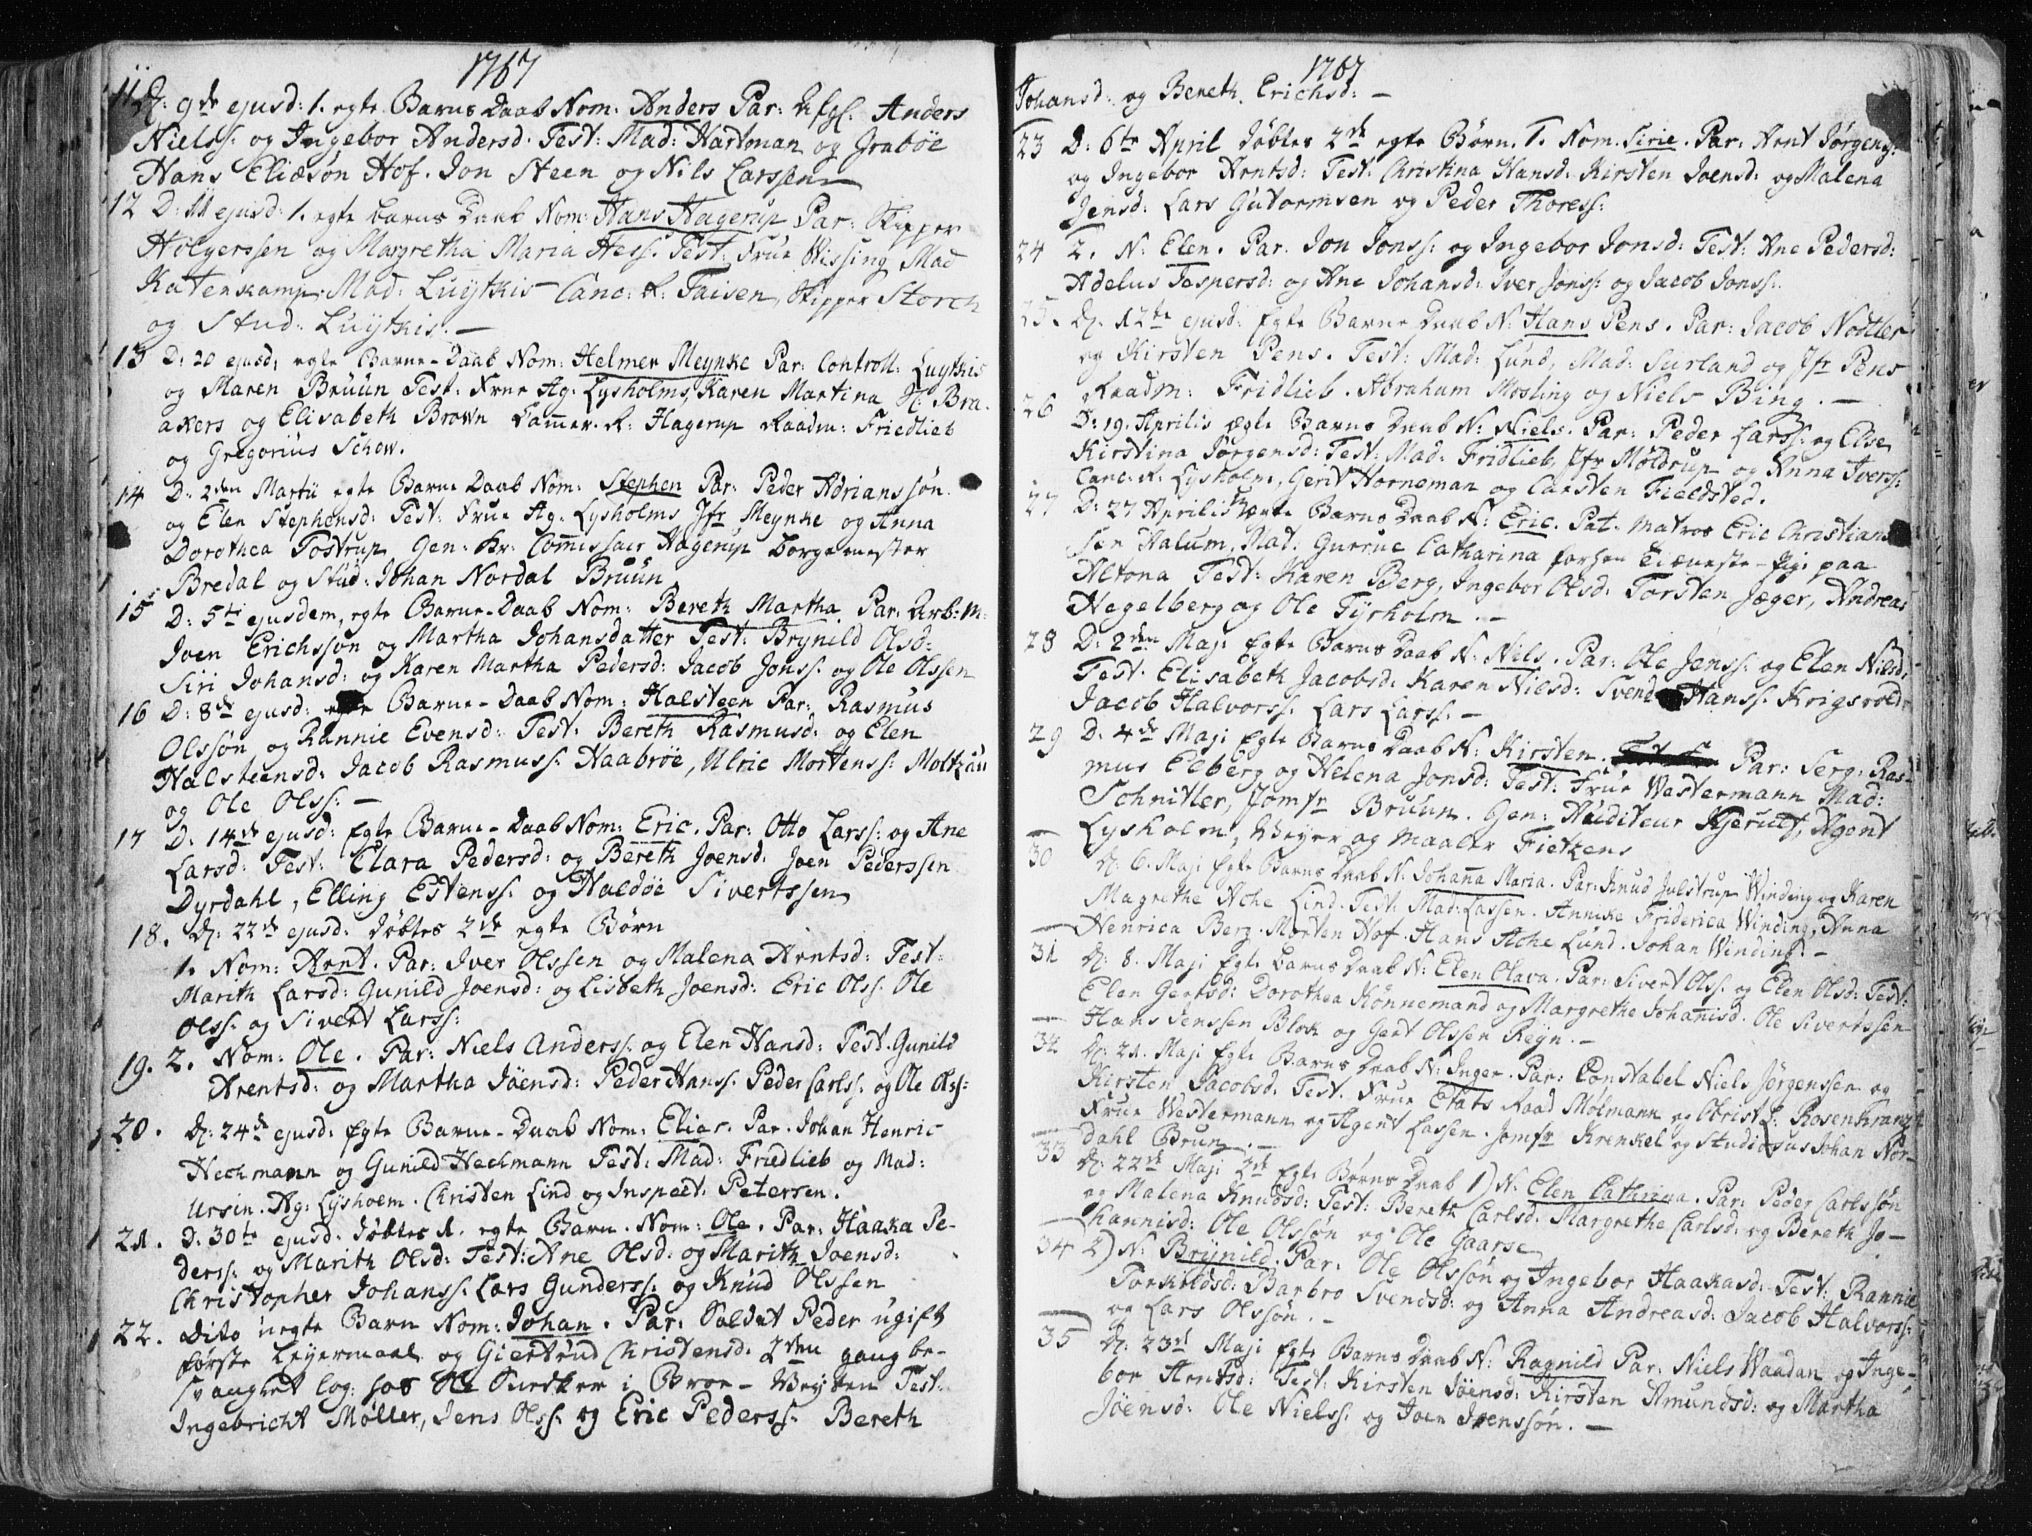 1767
11 D: 9de ejusd: 1. egte Barns Daab Nom: Anders Par: Anders
Nielss: og Ingebor Andersd: Test: Mad: Hartman og Graböe
Hans Eliæsøn Hof. Jon Steen og Nils Larssen
12 D: 11 ejusd: 1. egte barns Daab Nom: Hans Hagerup Par: Skipper
Holgerssen og Margretha Maria Hess: Test: Frue Wissing Mad
Katenkamp. Mad: Luytkis Canc: R: Taisen, Skipper Storch
og Stud: Luytkis. —
13 D: 20 ejusd: egte Barne-Daab Nom: Helmer Meynke Par: Controll: Luytkis
og Maren Bruun Test: Frue Ag: Lysholms, Karen Martina H: Bra-
akers og Elisabeth Brown Cammer-R: Hagerup Raadm: Friedlieb
og Gregorius Schow.
14 D: 2den Martii egte Barne Daab Nom: Stephen Par: Peder Adrianssøn
og Elen Stephensd: Test: Frue Ag: Lysholms Jfr Meynke og Anna
Dorothea Tostrup, Gen: Kr: Commissair Hagerup borgemester
Bredal og Stud: Johan Nordal Bruun
15 D: 5te ejusdem, egte Barne-Daab Nom: Bereth Martha Par: Arb: M:
Joen Erichssøn og Martha Johansdatter Test: Brynild Olsd:
Siri Johansd: og Karen Martha Pedersd: Jacob Jonss: og Ole Olssen
16 D: 8de ejusd: egte Barne-Daab Nom: Halsteen Par: Rasmus
Olssøn og Rannie Evensd: Test: Bereth Rasmusd: og Elen
Halsteensd: Jacob Rasmuss: Haabrøe, Ulric Mortenss: Moltzau
og Ole Olss: —
17 D: 14de ejusd: Egte Barne-Daab Nom: Eric. Par: Otto Larss: og Ane
Larsd: Test: Clara Pedersd: og Bereth Joensd: Joen Pederssen
Dyrdahl, Elling Estenss: og Haldøe Sivertssen
18. D: 22de ejusd: Døbtes 2de egte Børn
1. Nom: Arnt. Par: Iver Olssen og Malena Arntsd: Test:
Marith Larsd: Gunild Joensd: og Lisbeth Joensd: Eric Olss: Ole
Olss: og Sivert Larss:
19. 2. Nom: Ole. Par: Niels Anderss: og Elen Hansd: Test: Gunild
Arentsd: og Martha Jöensd: Peder Hanss: Peder Carlss: og Ole Olss:
20. D: 24de ejusd: Egte Barne-Daab Nom: Elias. Par: Johan Henric
Hechmann og Gunild Hechmann Test: Mad: Friedlieb og Mad:
Ursin. Ag: Lysholm. Christen Lind og Inspect: Petersen.
21. D. 30te ejusd. Døbtes 1. egte Barn. Nom: Ole. Par: Haaka Pe-
derss: og Marith Olsd: Test: Ane Olsd: og Marith Joensd:
Christopher Johanss: Lars Gunderss: og Knud Olssen
22. Dito uegte Barn Nom: Johan. Par: Soldat Peder ugift
første Leyermaal og Giertrud Christensd: 2den gang be-
svangret log: hos Ole Snedker i Broe- Test:
Ingebricht Møller, Jens Olss: og Eric Pederss: Bereth
1767
Johansd: og Bereth Erichsd: —
23 D: 6te April Døbtes 2de egte Børn. 1. Nom. Sirie. Par: Arnt Jørgenss:
og Ingebor Arntsd: Test: Christina Hansd: Kirsten Joensd: og Malena
Jensd: Lars Gutormsen og Peder Thoress:
24 2. N: Elen. Par: Jon Jonss: og Ingebor Jonsd: Test: Ane Pedersd:
Adelus Jespersd: og Ane Johansd: Iver Jonss: og Jacob Jonss:
25. D: 12te ejusd: Egte Barne Daab N: Hans Pens. Par: Jacob Nodtler
og Kirsten Pens. Test: Mad: Lund, Mad: Surland og Jfr Pens
Raadm: Fridlieb. Abraham Mosling og Niels Bing. —
26 D: 19. Aprilis egte Barns Daab N: Niels. Par: Peder Larss: og Else
Kirstina Jørgensd: Test: Mad: Fridlieb, Jfr Møldrup og Anna Iverss:
Canc: R: Lysholm, Gerit Horneman og Carsten Fieldsted.
27 D: 27 Aprilis Barns Daab N: Eric. Pat: Matros Eric Christian-
sen Halum, Mad: Gurrue Catharina forhen Tieneste-Pige paa
Altona Test: Karen Berg, Ingebor Olsd: Torsten Jæger, Andreas
Hegelberg og Ole Tyrholm. —
28 D: 2den Maji Egte Barns Daab N: Nils. Par: Ole Jenss: og Elen Nilsd:
Test: Elisabeth Jacobsd: Karen Nilsd: Svend Hanss: Krigsvold
Jacob Halvorss: Lars Larss: —
29 D: 4de Maji Egte Barns Daab N: Kirsten. Par: Serg: Ras-
mus Elberg og Helena Jonsd: Test: Frue Westermann Mad:
Schnitler, Jomfr Bruun. Gen: Auditeur Hjerulf, Agent
Lysholm, Weyer og Maaler Fietzens
30 D: 6. Maji Egte Barns Daab N: Johanna Maria. Par: Knud Julstrup Winding og Karen
Magrethe Ache Lind. Test: Mad: Lassen. Annike Friderica Winding, Anna
Henrica Berg. Morten Hof. Hans Ache Lund. Johan Winding. —
31 D: 8. Maji Egte Barns Daab N: Elen Olava. Par: Sivert Olss: og Elen Olsd: Test:
Elen Gertsd: Dorothea Könnemand og Margrethe Johannisd: Ole Sivertssen
Hans Jenssen Blok og Gert Olssen Reyn. —
32 D: 21. Maji Egte Barns Daab N: Inger. Par: Constabel Niels Jørgenssen og
Kirsten Jacobsd: Test: Frue Etats Raad Mølmann og Obrist L: Rosenkranz
Frue Westermann og Agent Lassen. Jomfr Krenkel og Studiosus Johan Nor-
dahl Brun. —
33 D: 22de Maji 2de Egte Børns Daab 1) N: Elen Cathrina. Par: Peder Carlssøn
og Malena Knudsd: Test: Bereth Carlsd: Margrethe Carlsd: og Bereth Jo-
hannisd: Ole Olssøn og Ole Gaarse
34 2) N: Brynild. Par: Ole Olssøn og Ingebor Haakasd: Test: Rannie
Torkildsd: Barbro Svendsd: og Anna Andreasd: Jacob Halvorss:
og Lars Olssøn. —
35 D: 23de Maji Egte Barns Daab N: Ragnild Par: Niels Waadan og Inge-
bor Arntsd: Test: Kirsten Jöensd: Kirsten Amundsd: og Martha
Jöensd: Ole Nielss: og Joen Joenssøn. —